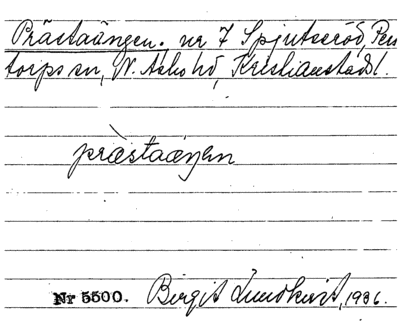 Prästaängen. nr 7 Spjutseröd, Pers
torps sn, N. Åsbo hd, Kristianstads l.
prästaäŋen
Nr 5500. Birgit Lundkvist, 1936.